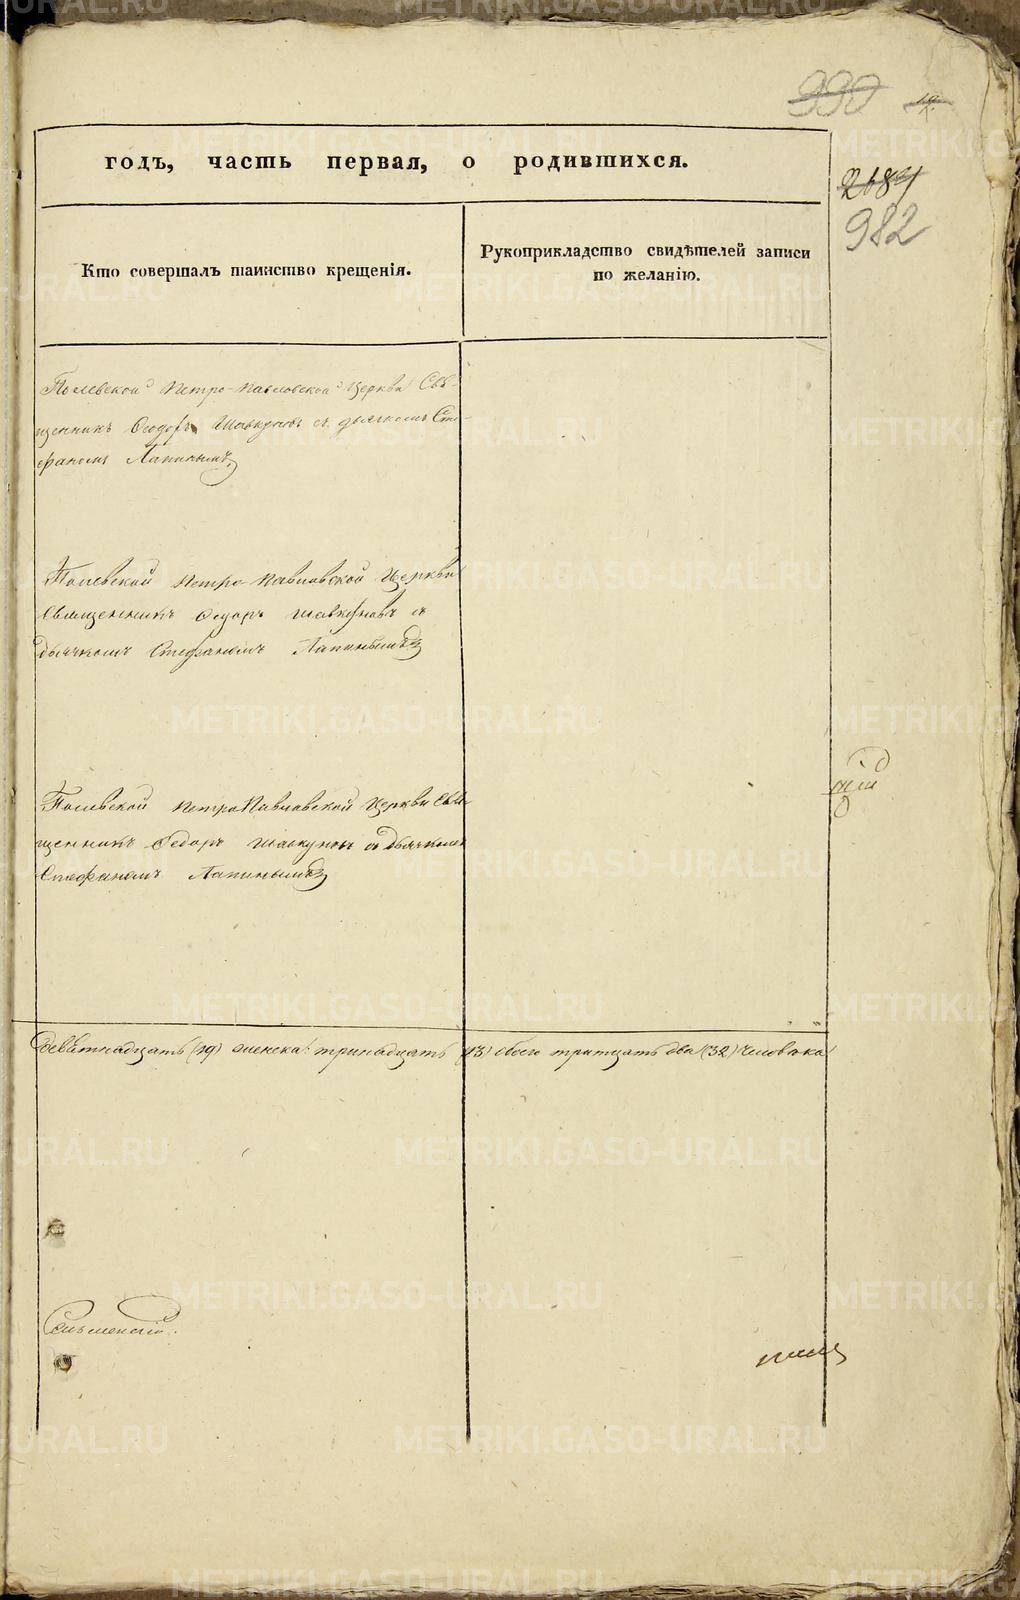 990
2684
982
годъ, часть первая, о родившихся.
Кто совершалъ таинство крещенія.
Рукоприкладство свидѣтелей записи
по желанію.
Полевской Петро-Павловской Церкви Свя-
щенникъ Ѳеодоръ Шавкуновъ съ дьячкомъ Сте-
фаномъ Лапинымъ
Полевской Петро Павловской Церкви
Священникъ Ѳедоръ Шавкуновъ съ
дьячкомъ Стефаномъ Лапинымъ
Полевской Петро Павловской Церкви Свя-
щенникъ Ѳедоръ Шавкуновъ съ дьячкомъ
Стефаномъ Лапинымъ
девятнадцать (19) женска: тринадцать (13) обоего тритцать два (32) человека
METRIKI.GASO-URAL.RU